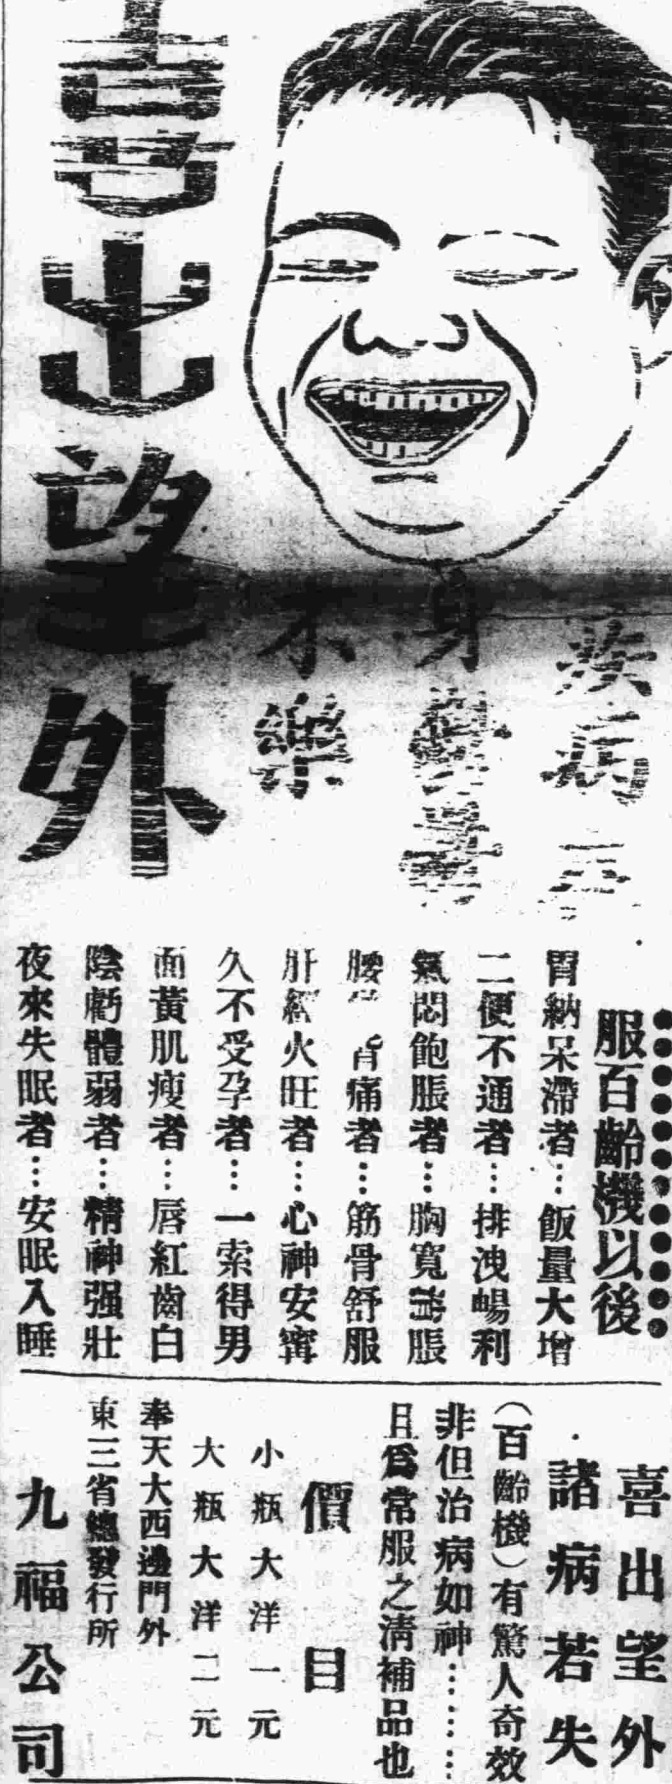 疾病
身
不樂
喜出望外
服百齡機以後
胃納呆滯者…飯量大增
二便不通者…排洩暢利
氣悶飽脹者…胸寬 脹
腰 背痛者…筋骨舒服
肝經火旺者…心神安寗
久不受孕者…一索得男
面黃肌瘦者…唇紅齒白
陰虧體弱者…精神强壯
夜來失眠者…安眠入睡
喜出望外
諸病若失
(百齡機)有驚人奇效
非但治病如神……
且爲常服之淸補品也
價目
小瓶大洋一元
大瓶大洋二元
奉天大西邊門外
東三省總發行所
九福公司